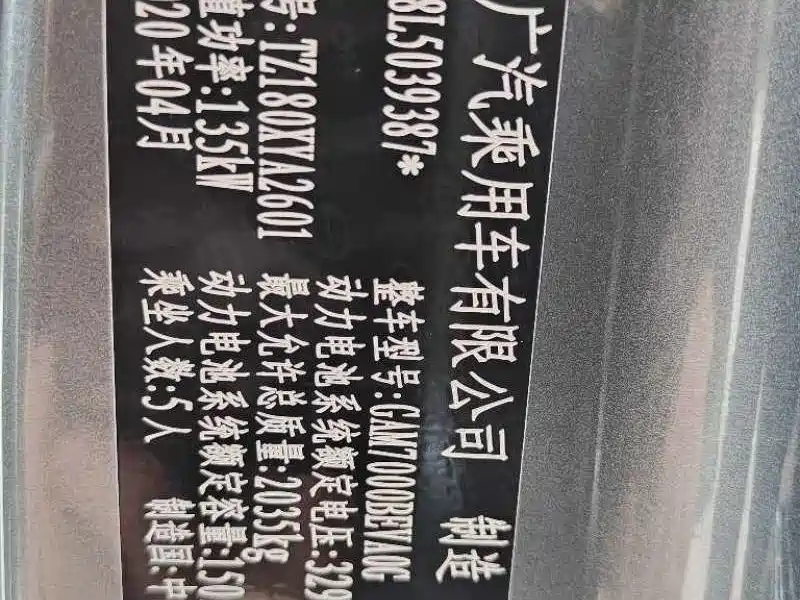 广汽乘用车有限公司 制造
8L5039387* 整车型号:GAM7000BEVA0C
动力电池系统额定电压:329
号:TZ180XYA2601 最大允许总质量:2035kg
功率:135kW 动力电池系统额定容量:150
20年04月 乘坐人数:5人 制造国:中